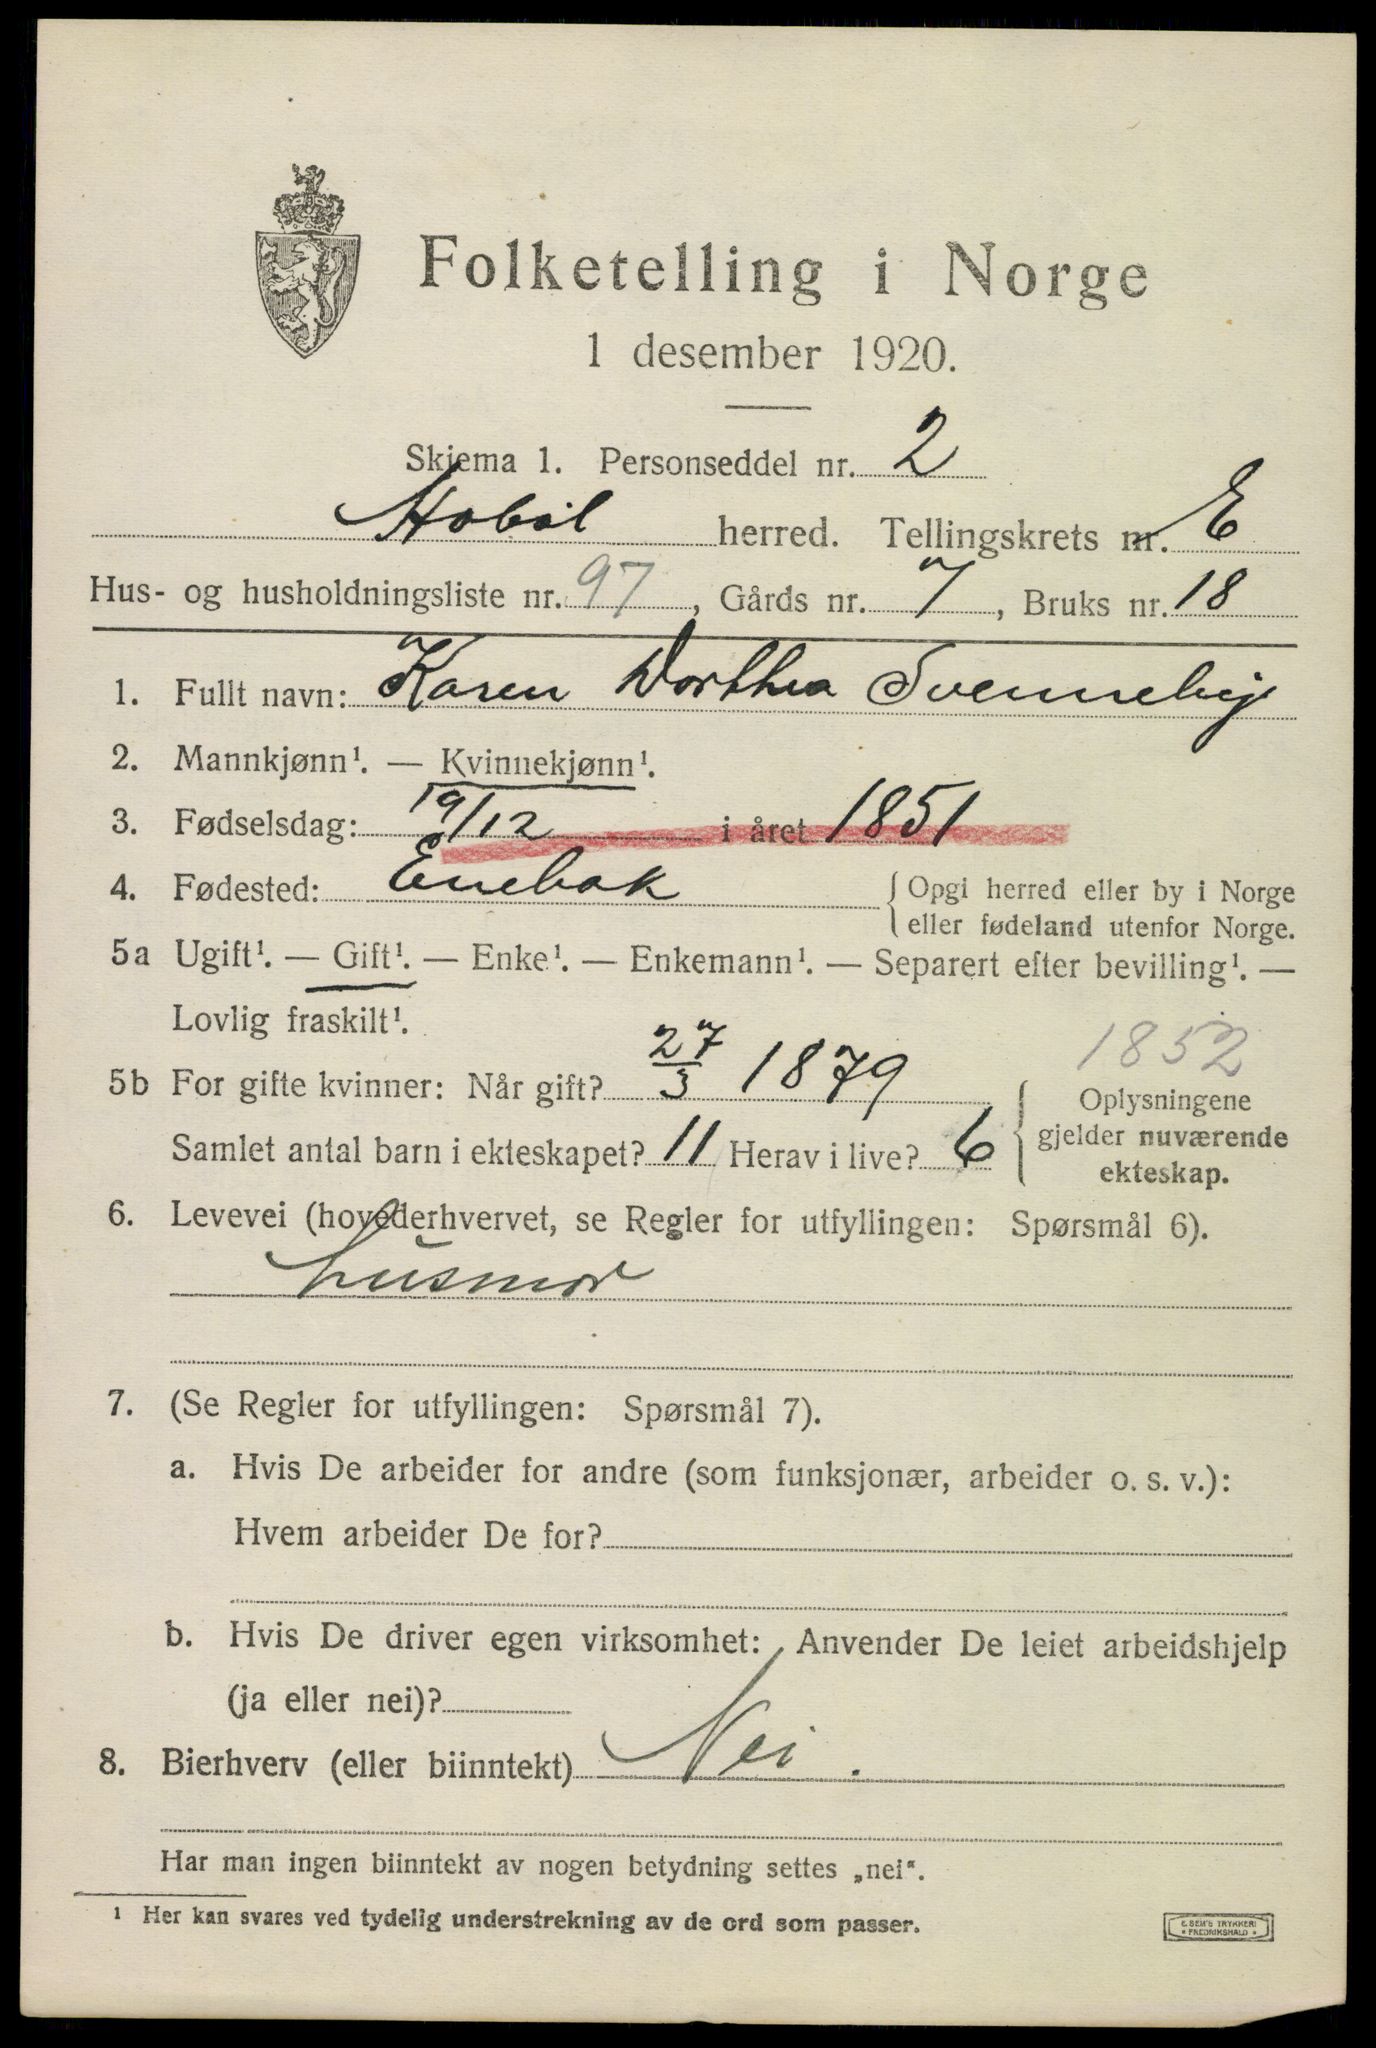 Folketelling i Norge
1 desember 1920.
Skjema 1. Personseddel nr. 2
Hobøl herred. Tellingskrets nr. E
Hus- og husholdningsliste nr. 97, Gårds nr. 7, Bruks nr. 18
1. Fullt navn: Karen Dorthea Svenneby
2. Mannkjønn¹. — Kvinnekjønn¹.
3. Fødselsdag: 19/12 i året 1851
4. Fødested: Enebak {Opgi herred eller by i Norge
eller fødeland utenfor Norge.
5a Ugift¹. — Gift¹. — Enke¹. — Enkemann¹. — Separert efter bevilling¹. —
Lovlig fraskilt¹.
1852
5b For gifte kvinner: Når gift? 27/3 1879
Samlet antal barn i ekteskapet? 11 Herav i live? 6
{Oplysningene
gjelder nuværende
ekteskap.
6. Levevei (hovederhvervet, se Regler for utfyllingen: Spørsmål 6).
husmor
7. (Se Regler for utfyllingen: Spørsmål 7).
a. Hvis De arbeider for andre (som funksjonær, arbeider o. s. v.):
Hvem arbeider De for?
b. Hvis De driver egen virksomhet: Anvender De leiet arbeidshjelp
(ja eller nei)?
8. Bierhverv (eller biinntekt) Nei.
Har man ingen biinntekt av nogen betydning settes „nei“.
¹ Her kan svares ved tydelig understrekning av de ord som passer.
E SEM'S TRYKKERI
• FREDRIKSHALD •